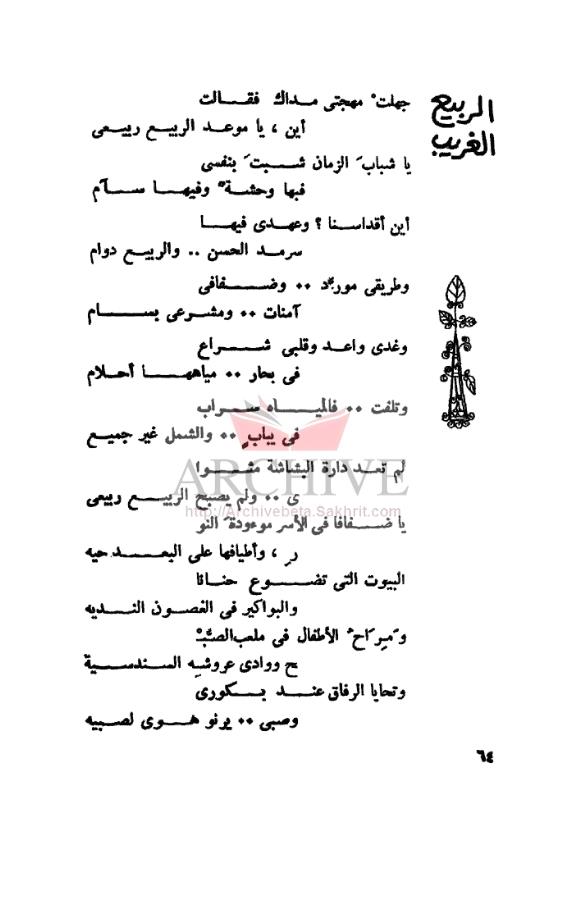 الربيع
الغريب
جهلتْ مهجتى مداك فقالت
أين ، يا موعد الربيع ربيعى
يا شبابَ الزمان شبتَ بنفسى
فبها وحشة وفيها سآم
أين أقداسنا ؟ وعهدى فيها
سرمد الحسن .. والربيع دوام
وطريقى مورد .. وضفافى
آمنات .. ومشرعى بسام
وغدى واعد وقلبى شراع
فى بحار .. مياهها أحلام
وتلفت .. فالمياه سراب
فى يبابٍ .. والشمل غير جميع
لم تعد دارة البشاشة مثوا
ى .. ولم يصبح الربيع ربيعى
يا ضفافا فى الأسر موءودةَ النو
رِ ، وأطيافها على البعد حيه
البيوت التى تضوع حنانا
والبواكير فى الغصون النديه
ومِراحُ الأطفال فى ملعب الصبْـ
ح ووادى عروشِه السندسية
وتحايا الرفاق عند بكورى
وصبى .. يرنو هوى لصبيه
ARCHIVE
http://Archivebeta.Sakhrit.com
٦٤